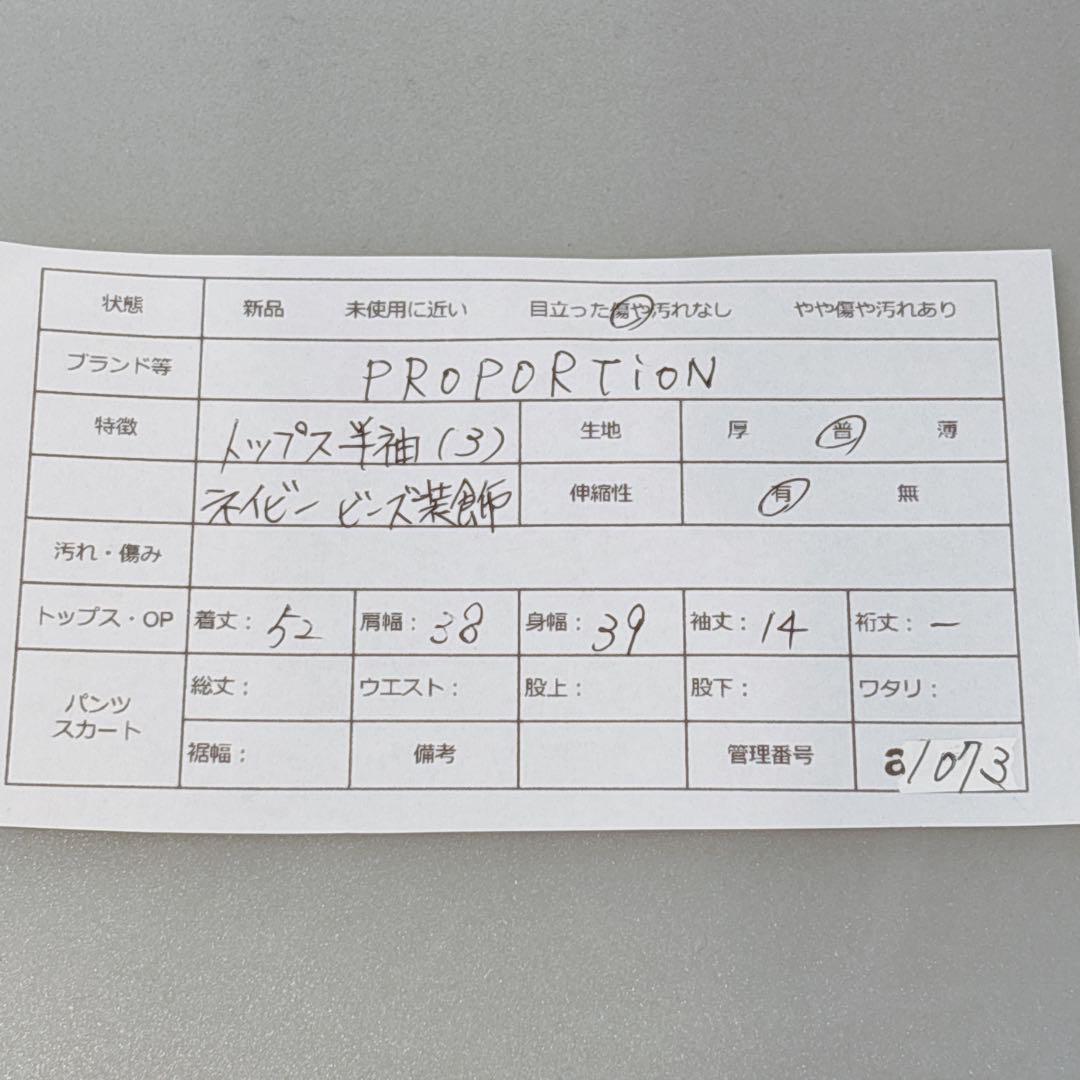 状態 新品 未使用に近い 目立った傷や汚れなし やや傷や汚れあり
ブランド等 PROPORTiON
特徴 トップス半袖(3) 生地 厚 普 薄
ネイビー ビーズ装飾 伸縮性 有 無
汚れ・傷み
トップス・OP 着丈: 52 肩幅: 38 身幅: 39 袖丈: 14 裄丈: ー
パンツ スカート 総丈: ウエスト: 股上: 股下: ワタリ:
裾幅: 備考 管理番号 a1073